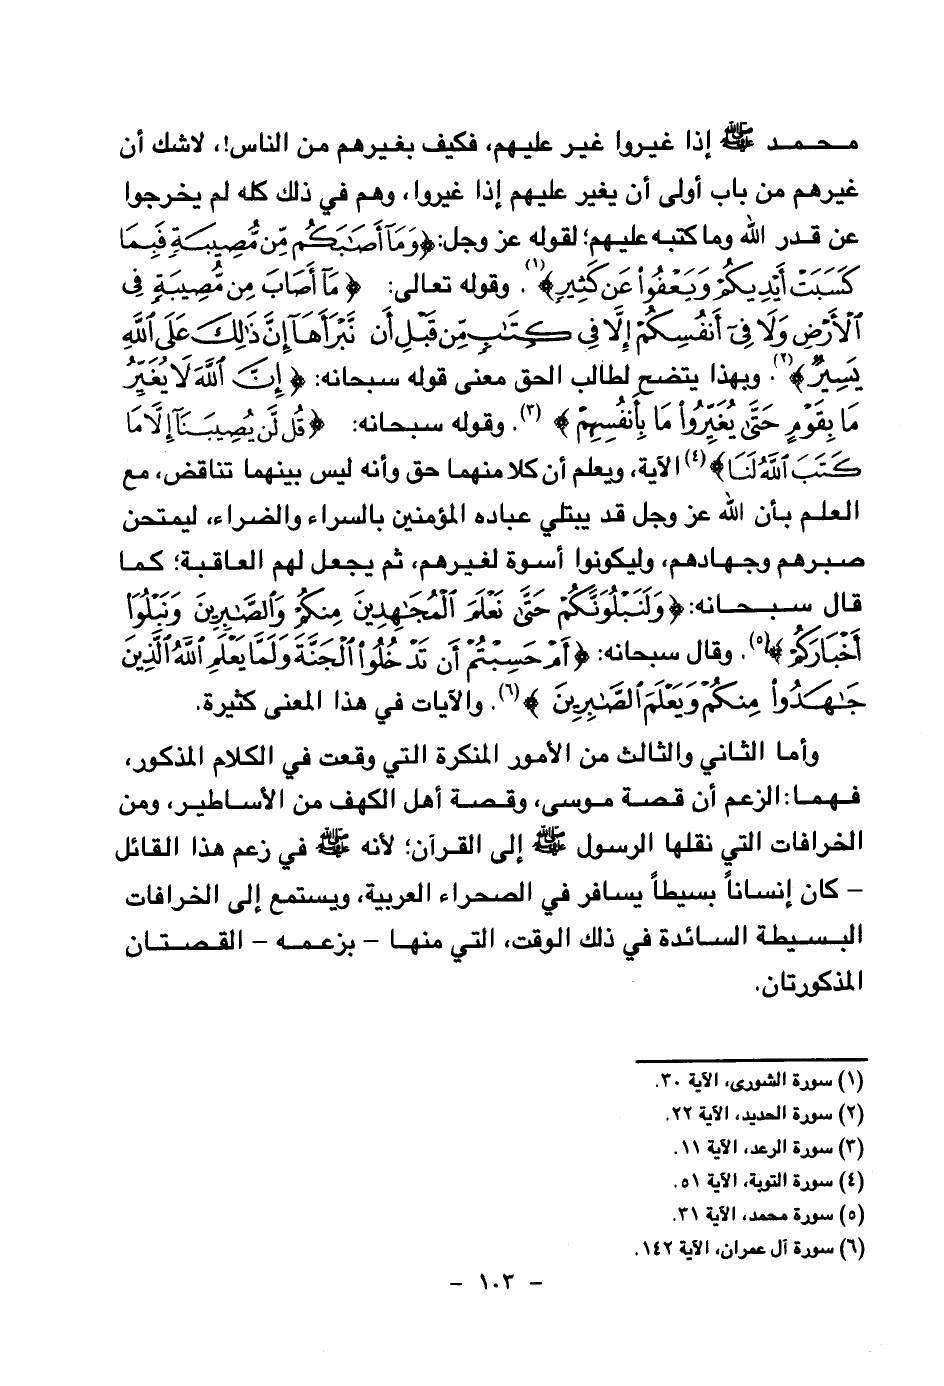 محمد ﷺ إذا غيروا غير عليهم، فكيف بغيرهم من الناس!، لاشك أن
غيرهم من باب أولى أن يغير عليهم إذا غيروا، وهم في ذلك كله لم يخرجوا
عن قدر الله وما كتبه عليهم؛ لقوله عز وجل: ﴿وَمَآ أَصَٰبَكُم مِّن مُّصِيبَةٖ فَبِمَا
كَسَبَتۡ أَيۡدِيكُمۡ وَيَعۡفُواْ عَن كَثِيرٖ﴾(١). وقوله تعالى: ﴿مَآ أَصَابَ مِن مُّصِيبَةٖ فِي
ٱلۡأَرۡضِ وَلَا فِيٓ أَنفُسِكُمۡ إِلَّا فِي كِتَٰبٖ مِّن قَبۡلِ أَن نَّبۡرَأَهَآ إِنَّ ذَٰلِكَ عَلَى ٱللَّهِ
يَسِيرٞ﴾(٢). وبهذا يتضح لطالب الحق معنى قوله سبحانه: ﴿إِنَّ ٱللَّهَ لَا يُغَيِّرُ
مَا بِقَوۡمٍ حَتَّىٰ يُغَيِّرُواْ مَا بِأَنفُسِهِمۡ﴾(٣). وقوله سبحانه: ﴿قُل لَّن يُصِيبَنَآ إِلَّا مَا
كَتَبَ ٱللَّهُ لَنَا﴾(٤) الآية، ويعلم أن كلا منهما حق وأنه ليس بينهما تناقض، مع
العلم بأن الله عز وجل قد يبتلي عباده المؤمنين بالسراء والضراء، ليمتحن
صبرهم وجهادهم، وليكونوا أسوة لغيرهم، ثم يجعل لهم العاقبة؛ كما
قال سبحانه: ﴿وَلَنَبۡلُوَنَّكُمۡ حَتَّىٰ نَعۡلَمَ ٱلۡمُجَٰهِدِينَ مِنكُمۡ وَٱلصَّٰبِرِينَ وَنَبۡلُوَاْ
أَخۡبَارَكُمۡ﴾(٥). وقال سبحانه: ﴿أَمۡ حَسِبۡتُمۡ أَن تَدۡخُلُواْ ٱلۡجَنَّةَ وَلَمَّا يَعۡلَمِ ٱللَّهُ ٱلَّذِينَ
جَٰهَدُواْ مِنكُمۡ وَيَعۡلَمَ ٱلصَّٰبِرِينَ﴾(٦). والآيات في هذا المعنى كثيرة.
وأما الثاني والثالث من الأمور المنكرة التي وقعت في الكلام المذكور،
فهما: الزعم أن قصة موسى، وقصة أهل الكهف من الأساطير، ومن
الخرافات التي نقلها الرسول ﷺ إلى القرآن؛ لأنه ﷺ في زعم هذا القائل
– كان إنساناً بسيطاً يسافر في الصحراء العربية، ويستمع إلى الخرافات
البسيطة السائدة في ذلك الوقت، التي منها – بزعمه – القصتان
المذكورتان.
(١) سورة الشورى، الآية ٣٠.
(٢) سورة الحديد، الآية ٢٢.
(٣) سورة الرعد، الآية ١١.
(٤) سورة التوبة، الآية ٥١.
(٥) سورة محمد، الآية ٣١.
(٦) سورة آل عمران، الآية ١٤٢.
– ١٠٣ –